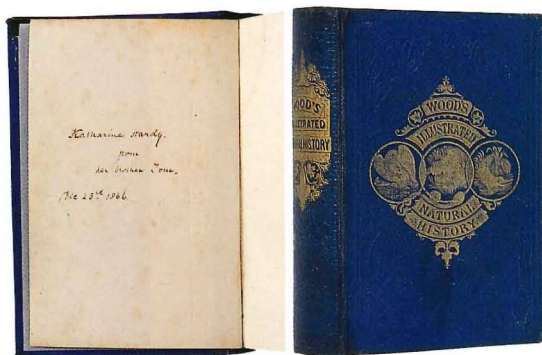 Katharine Hardy.
from
her brother Tom.
Dec 23rd. 1866
WOOD'S
ILLUSTRATED
NATURAL HISTORY
WOOD'S
ILLUSTRATED
NATURAL
HISTORY